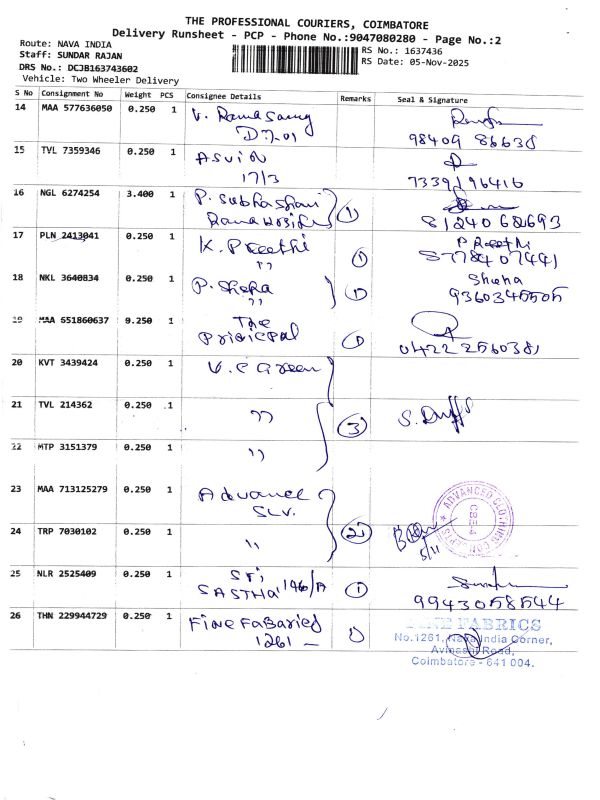 THE PROFESSIONAL COURIERS, COIMBATORE
Delivery Runsheet - PCP - Phone No.:9047080280 - Page No.:2
Route: NAVA INDIA
RS No.: 1637436
Staff: SUNDAR RAJAN
RS Date: 05-Nov-2025
DRS No.: DCJB163743602
Vehicle: Two Wheeler Delivery
S No Consignment No Weight PCS Consignee Details Remarks Seal & Signature
14 MAA 577636050 0.250 1 V. Ramasamy
D7.01
98409 86638
15 TVL 7359346 0.250 1 ASVIN
17/3
7339196416
16 NGL 6274254 3.400 1 P. Subhashani
1
8124062693
17 PLN 2413041 0.250 1 K. Preethi
" 1
P Preethi
8778407441
18 NKL 3640834 0.250 1 P. Sneha
" 1
Sneha
9360345505
19 MAA 651860637 0.250 1 The
Principal 1
0422 2560381
20 KVT 3439424 0.250 1 V. C Green
21 TVL 214362 0.250 1 " 3
22 MTP 3151379 0.250 1 "
23 MAA 713125279 0.250 1 Advanced
SLV.
ADVANCED CLOTHING CONCEPTS
CBE-4
24 TRP 7030102 0.250 1 " 2
5/11
25 NLR 2525409 0.250 1 Sri
SASTHA 146/A 1
9943058544
26 THN 229944729 0.250 1 Fine Fabaried
1261 - 1
FINE FABRICS
No.1261, Nava India Corner,
Avinashi Road,
Coimbatore - 641 004.